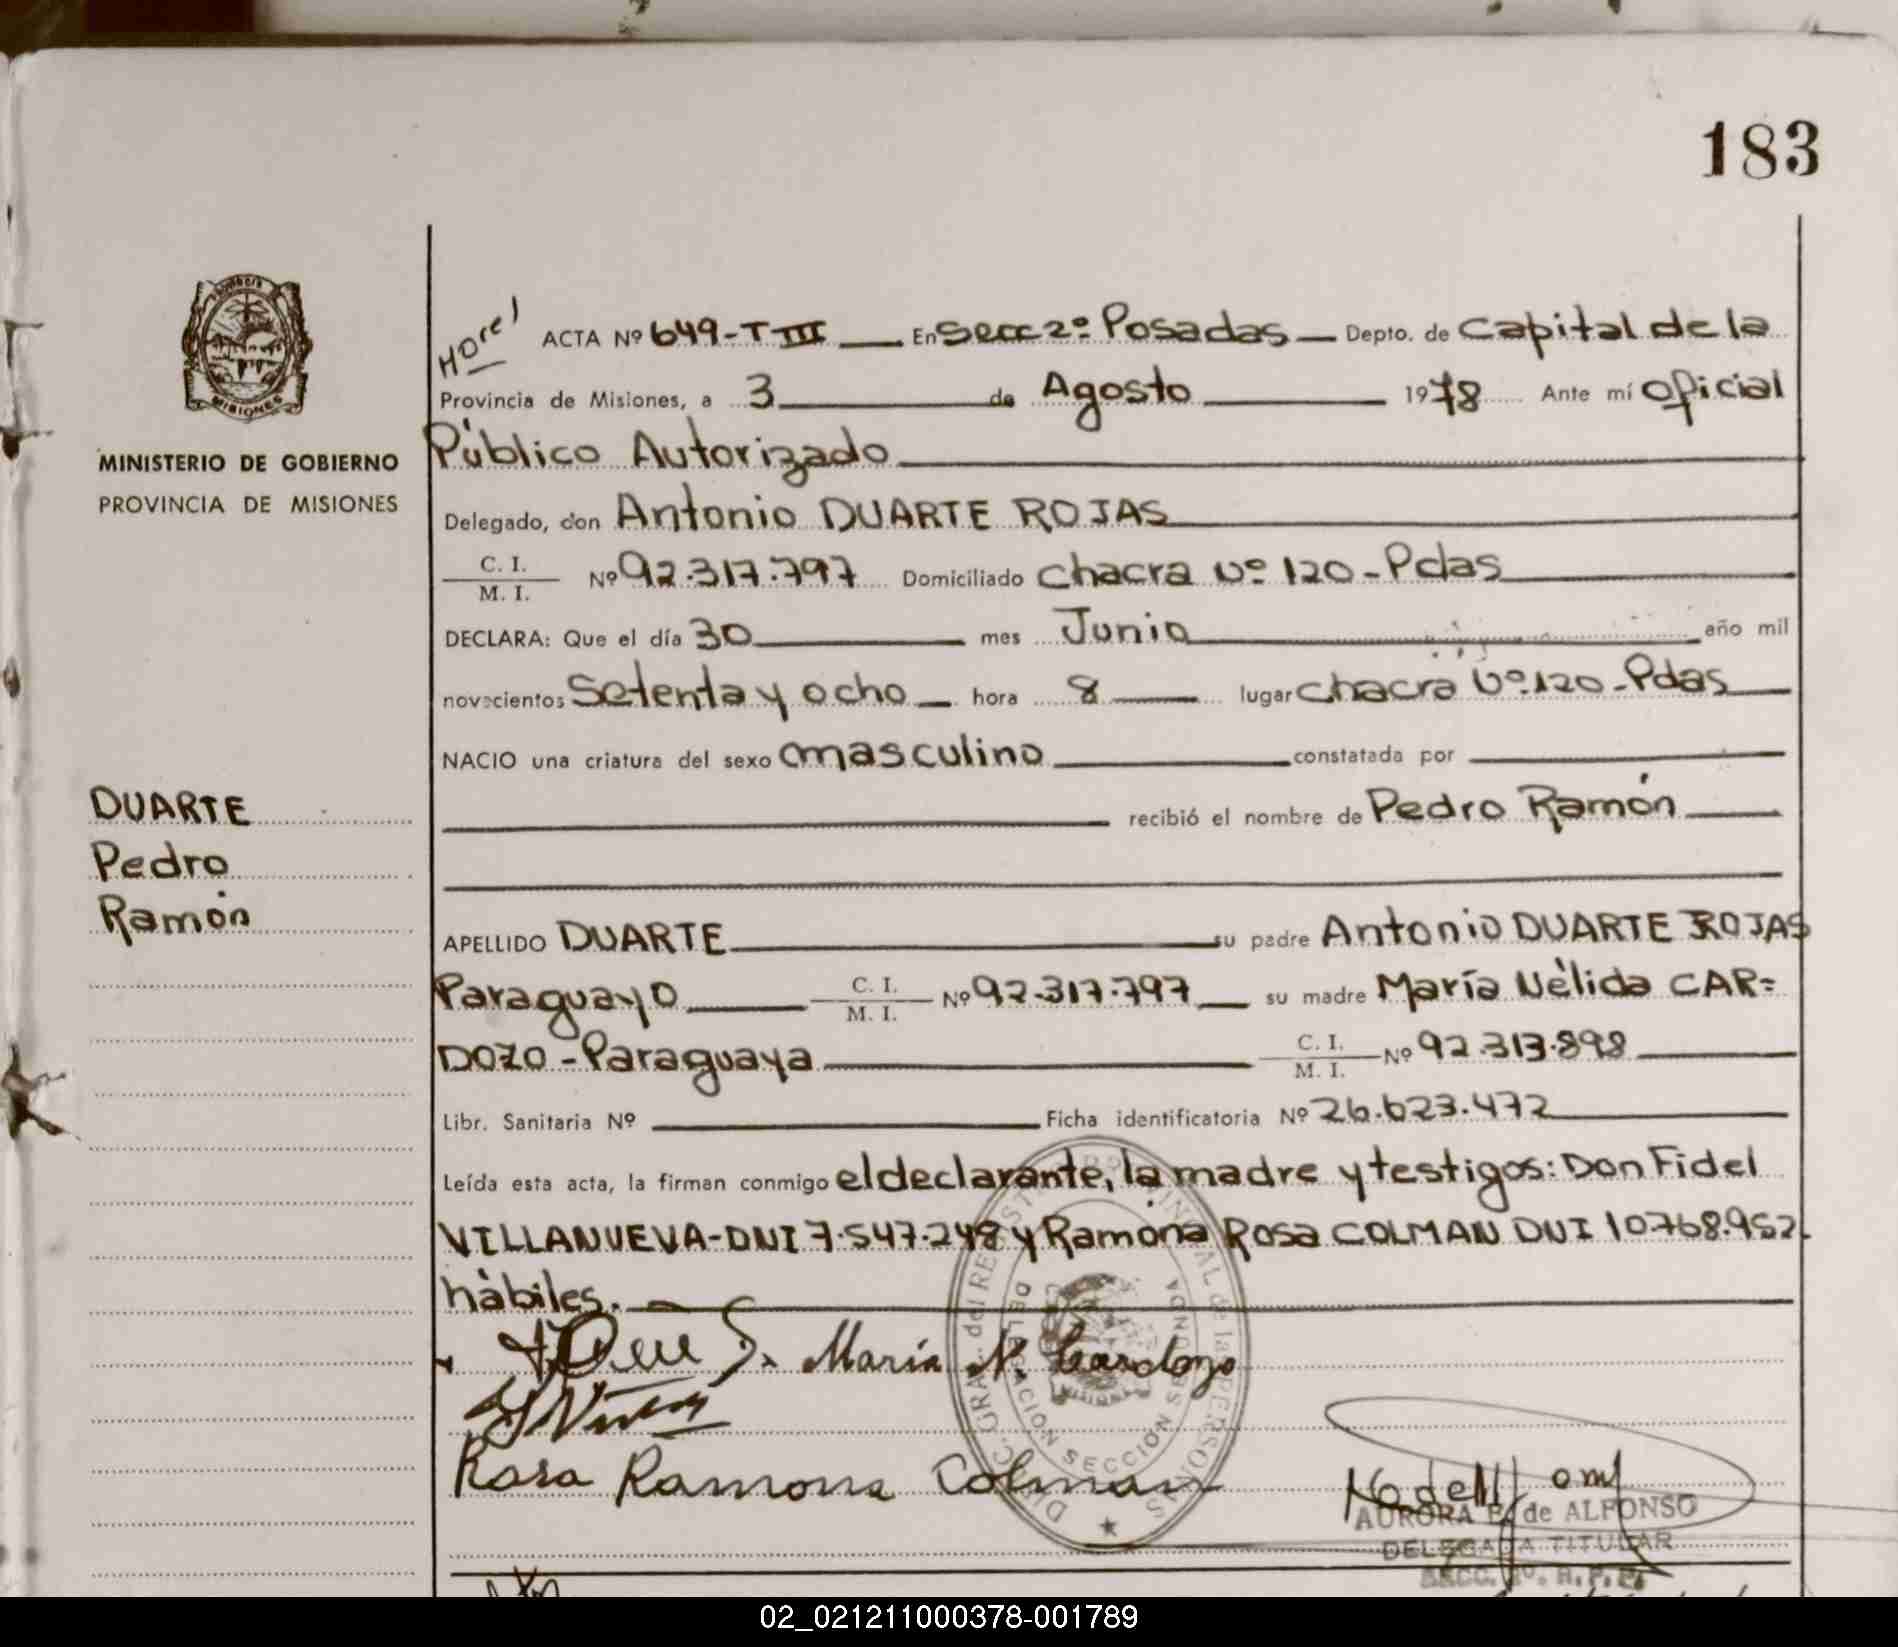 183
HOre!
ACTA Nº 649-T III En Secc 2º Posadas Depto. de Capital de la
Provincia de Misiones, a 3 de Agosto 1978 Ante mí Oficial
Público Autorizado
MINISTERIO DE GOBIERNO
PROVINCIA DE MISIONES
MISIONES
Delegado, don Antonio DUARTE ROJAS
C. I.
M. I. Nº 92.317.797 Domiciliado Chacra Nº 120-Pdas
DECLARA: Que el día 30 mes Junio año mil
novecientos Setenta y ocho hora 8 lugar Chacra Nº 120-Pdas
NACIO una criatura del sexo masculino constatada por
recibió el nombre de Pedro Ramón
DUARTE
Pedro
Ramón
APELLIDO DUARTE su padre Antonio DUARTE ROJAS
Paraguayo C. I.
M. I. Nº 92.317.797 su madre María Nélida CAR=
DOZO-Paraguaya C. I.
M. I. Nº 92.313.898
Libr. Sanitaria Nº Ficha identificatoria Nº 26.623.472
Leída esta acta, la firman conmigo el declarante, la madre y testigos: Don Fidel
VILLANUEVA-DNI 7.547.248 y Ramona Rosa COLMAN DNI 10.768.952
hábiles.
María N. Cardozo
Rosa Ramona Colman
DELEGACION SECCIÓN SEGUNDA
MISIONES
AURORA E. de ALFONSO
DELEGADA TITULAR
02_021211000378-001789